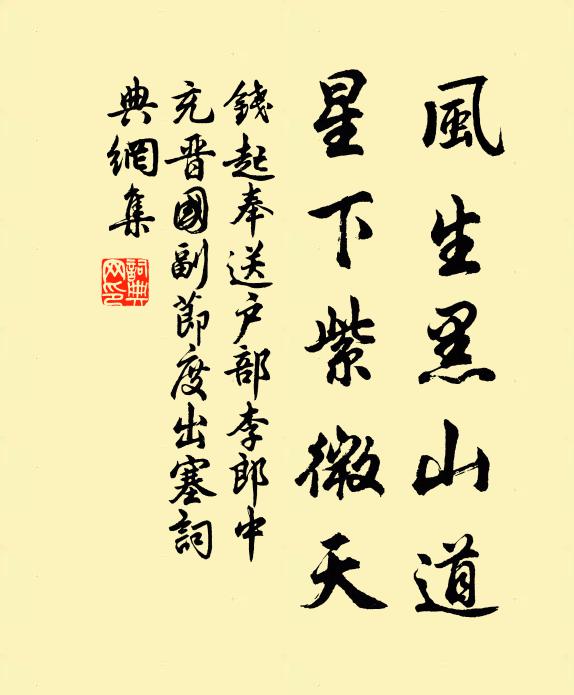 風生黑山道
星下紫微天
錢起奉送户部李郎中
充晋國副節度出塞詞
典網集
詞典網印